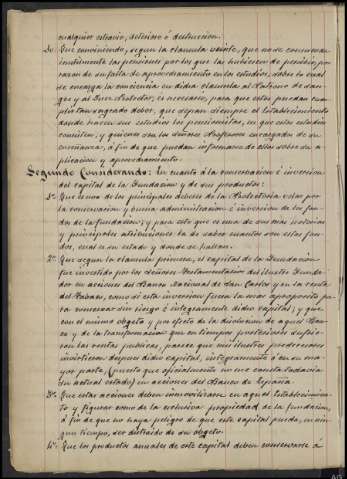 cualquier estravio, deterioro ó destruccion.
20. Que conviniendo, segun la clausula veinte, que no se consuman
inutilmente las pensiones por los que las hubiesen de percibir, por
razon de su falta de aprovechamiento en los estudios, sobre lo cual
se encarga la conciencia en dicha clausula al Patrono de san-
gre y al Juez Protector, es necesario, para que estos puedan cum-
plir tan sagrado deber, que sepan siempre el Establecimiento
donde hacen sus estudios los pensionistas, en que estos estudios
consisten, y quienes son los señores Profesores encargados de su
enseñanza, á fin de que puedan informarse de ellos sobre su a-
plicacion y aprovechamiento.
Segundo Considerando: En cuanto á la conservacion é inversion
del capital de la Fundacion y de sus productos:
1º. Que es uno de los principales deberes de la Protectoria velar por
la conservacion y buena administracion é inversion de los fon-
dos de la fundacion; y para esto que es una de sus mas
y principales atribuciones la de saber cuantos son estos fon-
dos, cual es su estado y donde se hallan.
2º. Que segun la clausula primera, el capital de la Fundacion
fue investido por los señores Testamentarios del ilustre Funda-
dor en acciones del Banco Nacional de San Carlos y en la renta
del Tabaco, como si esta inversion fuera la mas aproposito pa-
ra conservar sin riesgo é integramente dicho capital; y que
con el mismo objeto y por efecto de la disolucion de aquel Ban-
co y de la transformacion que en tiempos posteriores sufrie-
ron las rentas publicas, parece que mis ilustres predecesores
invirtieron despues dicho capital, integramente ó en su ma-
yor parte, (puesto que oficialmente no me consta todavia
su actual estado) en acciones del Banco de España.
3º. Que estas acciones deben inmovilizarse en aquel Establecimien-
to y figurar como de la esclusiva propiedad de la fundacion,
á fin de que no haya peligro de que este capital pueda, en nin-
gun tiempo, ser distraido de su objeto.
4º. Que los productos anuales de este capital deben conservarse á